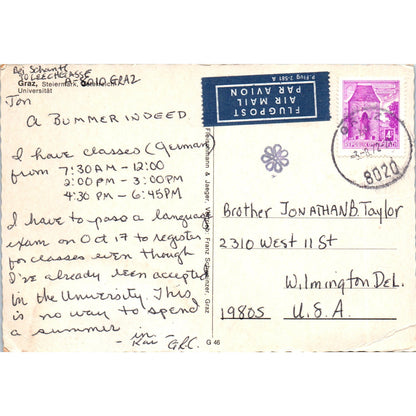 Bei Schantl
30 LEECHGASSE
A-8010 GRAZ
Graz, Steiermark, Österreich
Universität
Jon
A BUMMER INDEED
I have classes (German)
from 7:30 AM - 12:00
2:00 PM - 3:00 PM
4:30 PM - 6:45 PM
I have to pass a language
exam on Oct 17 to register
for classes even though
I've already been accepted
in the University. This
is no way to spend
a summer
- in
Kai - GRC.
FLUGPOST
AIR MAIL
PAR AVION
P.-Flug 2-581 A
Jaeger, Franz Graz
G 46
8020
Brother JONATHAN B. Taylor
2310 West 11 St
Wilmington Del.
19805 U.S.A.